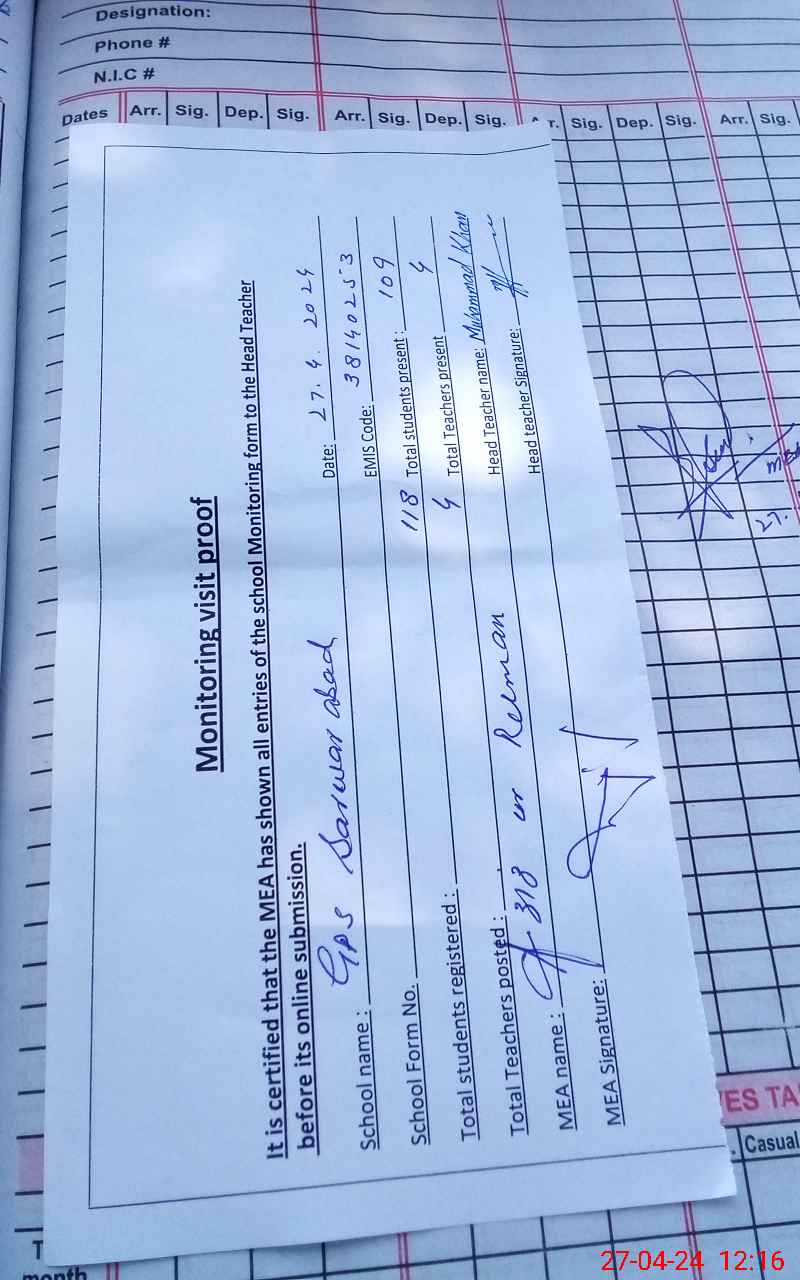 Designation:
Phone #
N.I.C #
Dates Arr. Sig. Dep. Sig. Arr. Sig. Dep. Sig. Sig. Dep. Sig. Arr. Sig.
Monitoring visit proof
It is certified that the MEA has shown all entries of the school Monitoring form to the Head Teacher
before its online submission.
School name : GPS Sarwar abad Date: 27.4.2024
School Form No. EMIS Code: 38140253
Total students registered : 118 Total students present : 109
Total Teachers posted : 4 Total Teachers present 4
MEA name : ur Rehman Head Teacher name: Muhammad Khan
MEA Signature: Head teacher Signature:
27.
Casual
month
27-04-24 12:16